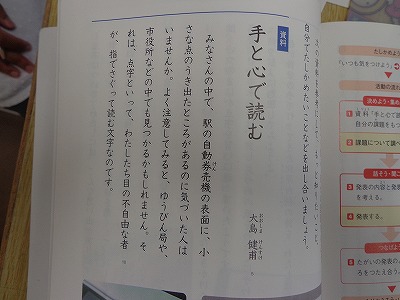 次の資料を参考にして、もっと知りたいこと、
自分でたしかめたいことなどを出し合いましょう。
資料
手と心で読む
大島 健甫
おおしま けんすけ
みなさんの中で、駅の自動券売機の表面に、小
けん
さな点のうき出たところがあるのに気づいた人は
いませんか。よく注意してみると、ゆうびん局や、
市役所などの中でも見つかるかもしれません。そ
れは、点字といって、わたしたち目の不自由な者
が、指でさぐって読む文字なのです。
5
10
たしかめよう
「いつも気をつけよう」
活動の流れ
決めよう・集め
1 資料「手と心で
自分の課題をもつ
2 課題について調べ
話そう・聞こ
3 発表の内容と発表
を考える。
4 発表する。
つなげよう
5 たがいの発表の
ろをつたえ合う。